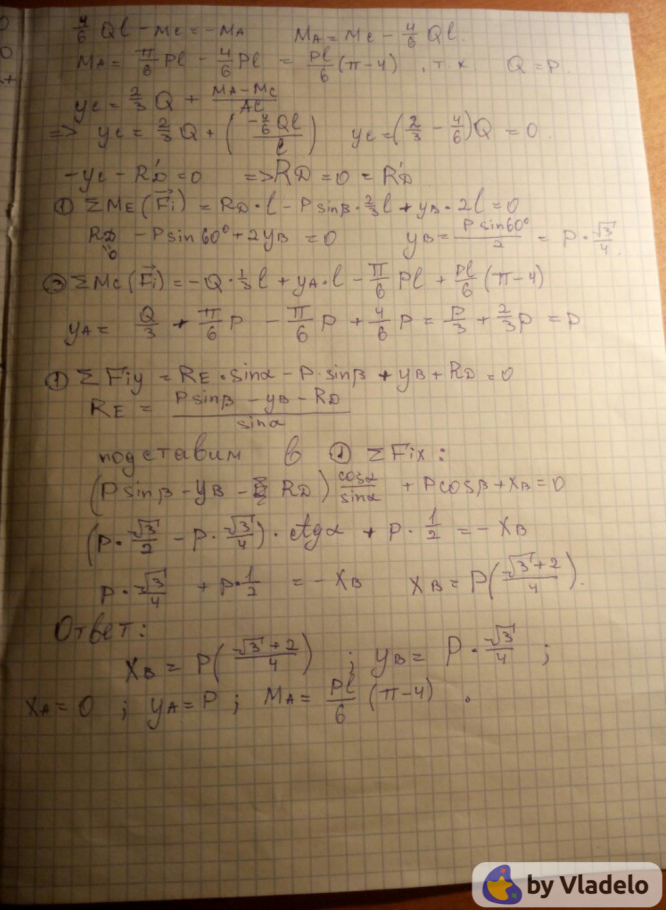 4/6 Ql - Mc = -MA    MA = Mc - 4/6 Ql.
MA = π/6 Pl - 4/6 Pl = Pl/6 (π-4), т.к. Q = P.
yc = 2/3 Q + (MA-Mc)/AC
=> yc = 2/3 Q + ((-4/6 Ql)/l)    yc = (2/3 - 4/6)Q = 0.
-yc - R'D = 0    => RD = 0 = R'D
① ΣME(F⃗i) = RD·l - Psinβ·2/3 l + yB·2l = 0
RD - Psin60° + 2yB = 0    yB = Psin60°/2 = P·√3/4.
"0
② ΣMc(F⃗i) = -Q·1/3 l + yA·l - π/6 Pl + Pl/6 (π-4)
yA = Q/3 + π/6 P - π/6 P + 4/6 P = P/3 + 2/3 P = P
① ΣFiy = RE·sinα - P·sinβ + yB + RD = 0
RE = (Psinβ - yB - RD)/sinα
подставим в ① ΣFix:
(Psinβ - yB - RD) cosα/sinα + Pcosβ + XB = 0
(P·√3/2 - P·√3/4)·ctgα + P·1/2 = -XB
P·√3/4 + P·1/2 = -XB    XB = P((√3+2)/4).
Ответ:
XB = P((√3+2)/4) ; yB = P·√3/4 ;
XA = 0 ; yA = P ; MA = Pl/6 (π-4) .
by Vladelo